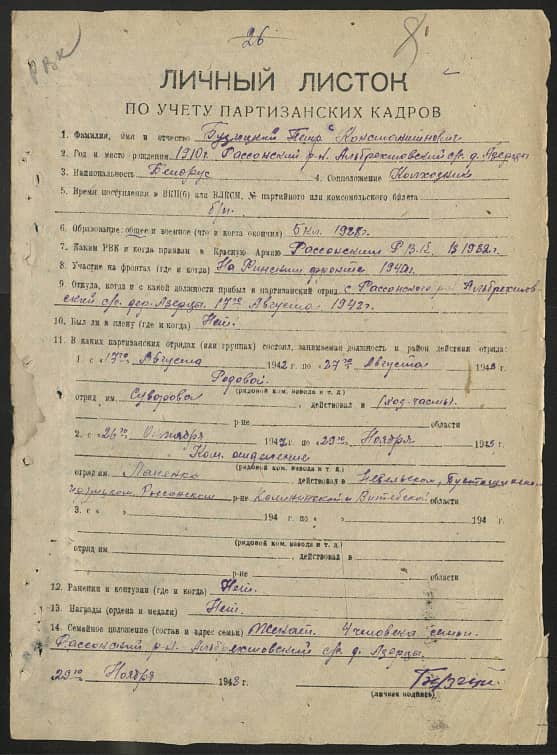 26
РВК
ЛИЧНЫЙ ЛИСТОК
ПО УЧЕТУ ПАРТИЗАНСКИХ КАДРОВ
1. Фамилия, имя и отчество Константинович
2. Год и место рождения 1910 г. Рассонский р-н. Альбрехтовский с/с. д.
3. Национальность Белорус 4. Соцположение Колхозник
5. Время поступления в ВКП(б) или ВЛКСМ, № партийного или комсомольского билета
б/п.
6. Образование: общее и военное (что и когда окончил) 5 кл. 1928 г.
7. Каким РВК и когда призван в Красную Армию Рассонским Р.В.К. В 1932 г.
8. Участие на фронтах (где и когда) На Финским фронте 1940 г.
9. Откуда, когда и с какой должности прибыл в партизанский отряд с Рассонского р-н Альбрехтов
ский с/с. дер. Азерца. 17го Августа 1942 г.
10. Был ли в плену (где и когда) Нет.
11. В каких партизанских отрядах (или группах) состоял, занимаемая должность и район действия отряда:
1. с „17го Августа 1942 г по „27го Августа 1943
Редовой.
(рядовой ком. взвода и т. д.)
отряд им. Суворова, действовал в (хоз-часть).
р-не области
2. с „ Октября 194 г по „29го Ноября 1943 г.
Ком. отделение
(рядовой ком. взвода и т. д.)
отряд им. действовал в Невельском,
Рассонском р-не Калининской и Витебской области
3. с „ „ 194 г по „ „ 194 г.
(рядовой ком. взвода и т. д.)
отряд им. действовал в
р-не области
12. Ранения и контузии (где и когда) Нет.
13. Награды (ордена и медали) Нет.
14. Семейное положение (состав и адрес семьи) Женат. 4 человека семьи.
Рассонский р-н. Альбрехтовский с/с. д. Азерцы.
29го Ноября 1943 г.
(личная подпись)